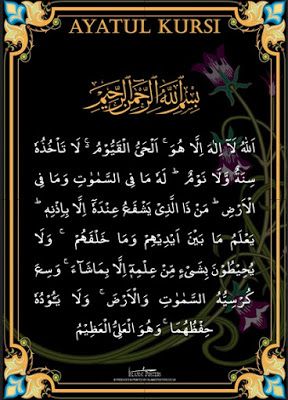 AYATUL KURSI
بِسْمِ اللهِ الرَّحْمٰنِ الرَّحِيْمِ
اَللهُ لَآ اِلٰهَ اِلَّا هُوَ ۚ اَلْحَيُّ الْقَيُّوْمُ ۚ لَا تَاْخُذُهٗ
سِنَةٌ وَّلَا نَوْمٌ ؕ لَهٗ مَا فِى السَّمٰوٰتِ وَمَا فِى
الْاَرْضِ ؕ مَنْ ذَا الَّذِىْ يَشْفَعُ عِنْدَهٗٓ اِلَّا بِاِذْنِهٖ ؕ
يَعْلَمُ مَا بَيْنَ اَيْدِيْهِمْ وَمَا خَلْفَهُمْ ۚ وَلَا
يُحِيْطُوْنَ بِشَىْءٍ مِّنْ عِلْمِهٖٓ اِلَّا بِمَاشَآءَ ۚ وَسِعَ
كُرْسِيُّهُ السَّمٰوٰتِ وَالْاَرْضَ ۚ وَلَا يَـُٔوْدُهٗ
حِفْظُهُمَا ۚ وَهُوَ الْعَلِىُّ الْعَظِيْمُ